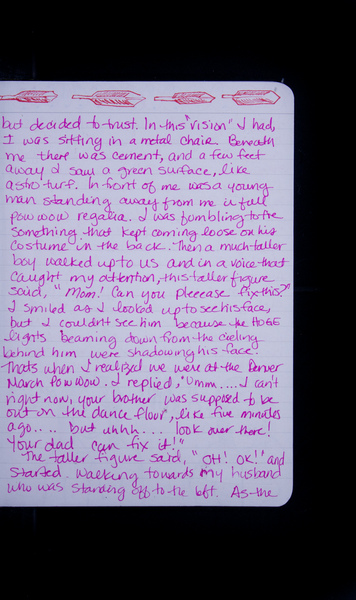 but decided to trust. In this "vision" I had,
I was sitting in a metal chair. Beneath
me there was cement, and a few feet
away I saw a green surface, like
astro-turf. In front of me was a young
man standing away from me in full
pow wow regalia. I was fumbling to fix
something that kept coming loose on his
costume in the back. Then a much taller
boy walked up to us and in a voice that
caught my attention, this taller figure
said, "Mom! Can you pleeease fix this?"
I smiled as I looked up to see his face,
but I couldn't see him because the HUGE
lights beaming down from the cieling
behind him were shadowing his face.
Thats when I realized we were at the Denver
March Pow Wow. I replied, "Umm.... I can't
right now, your brother was supposed to be
out on the dance floor, like five minutes
ago.... but uhhh.... look over there!
Your dad can fix it!"
The taller figure said, "OH! OK!" and
started walking towards my husband
who was standing off to the left. As the